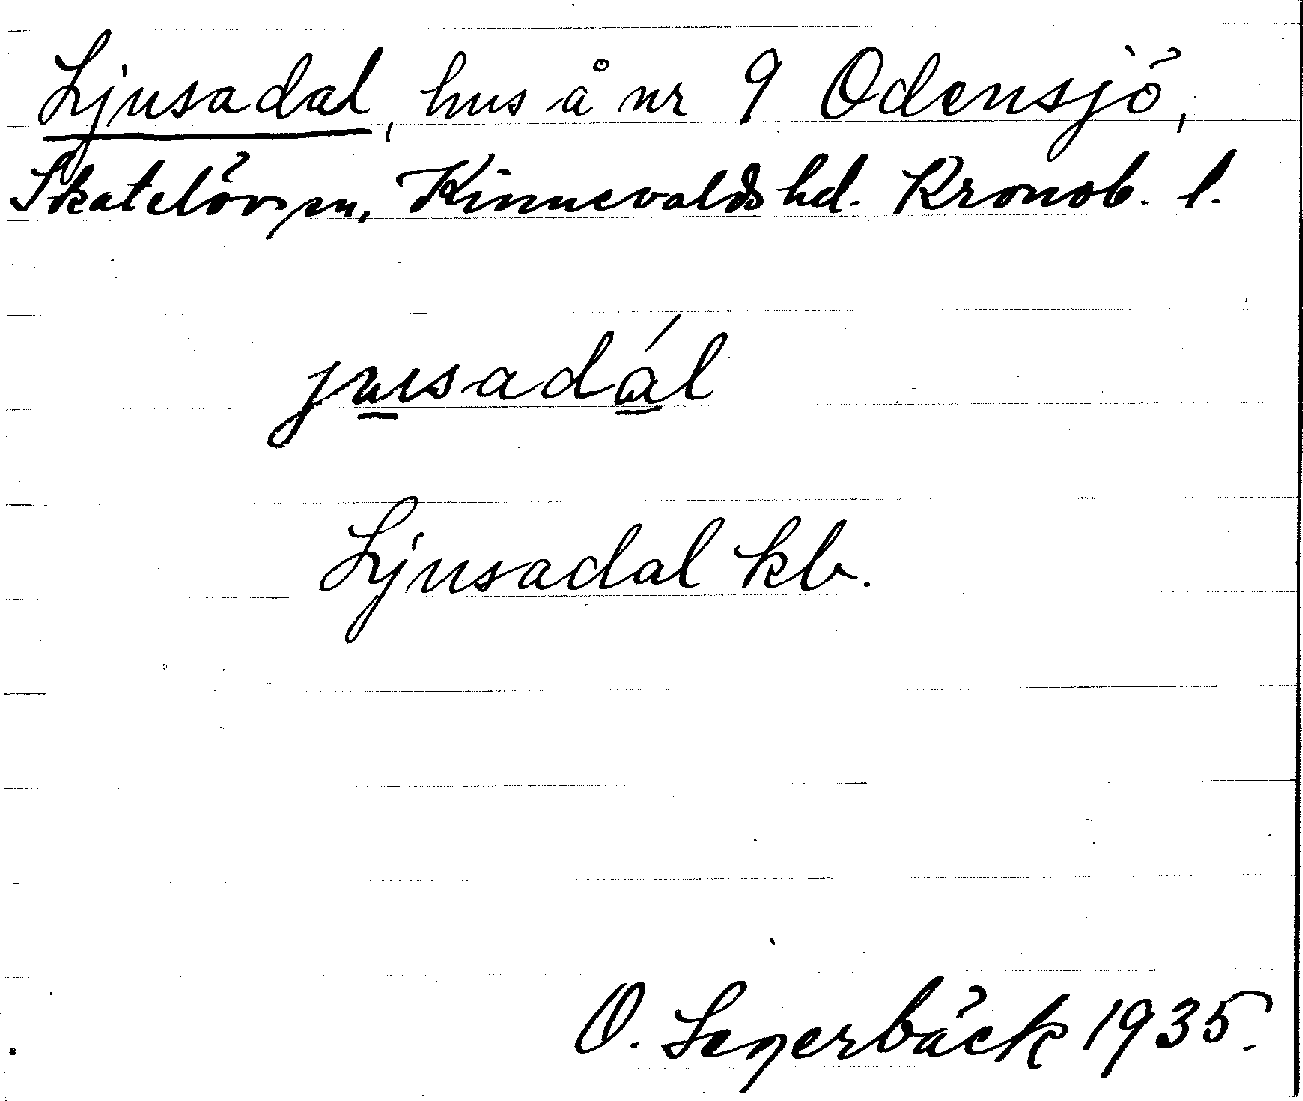 Ljusadal, hus å nr 9 Odensjö,
Skatelövs sn, Kinnevalds hd. Kronob. l.
jusadál
Ljusadal kb.
O. Segerbäck 1935.